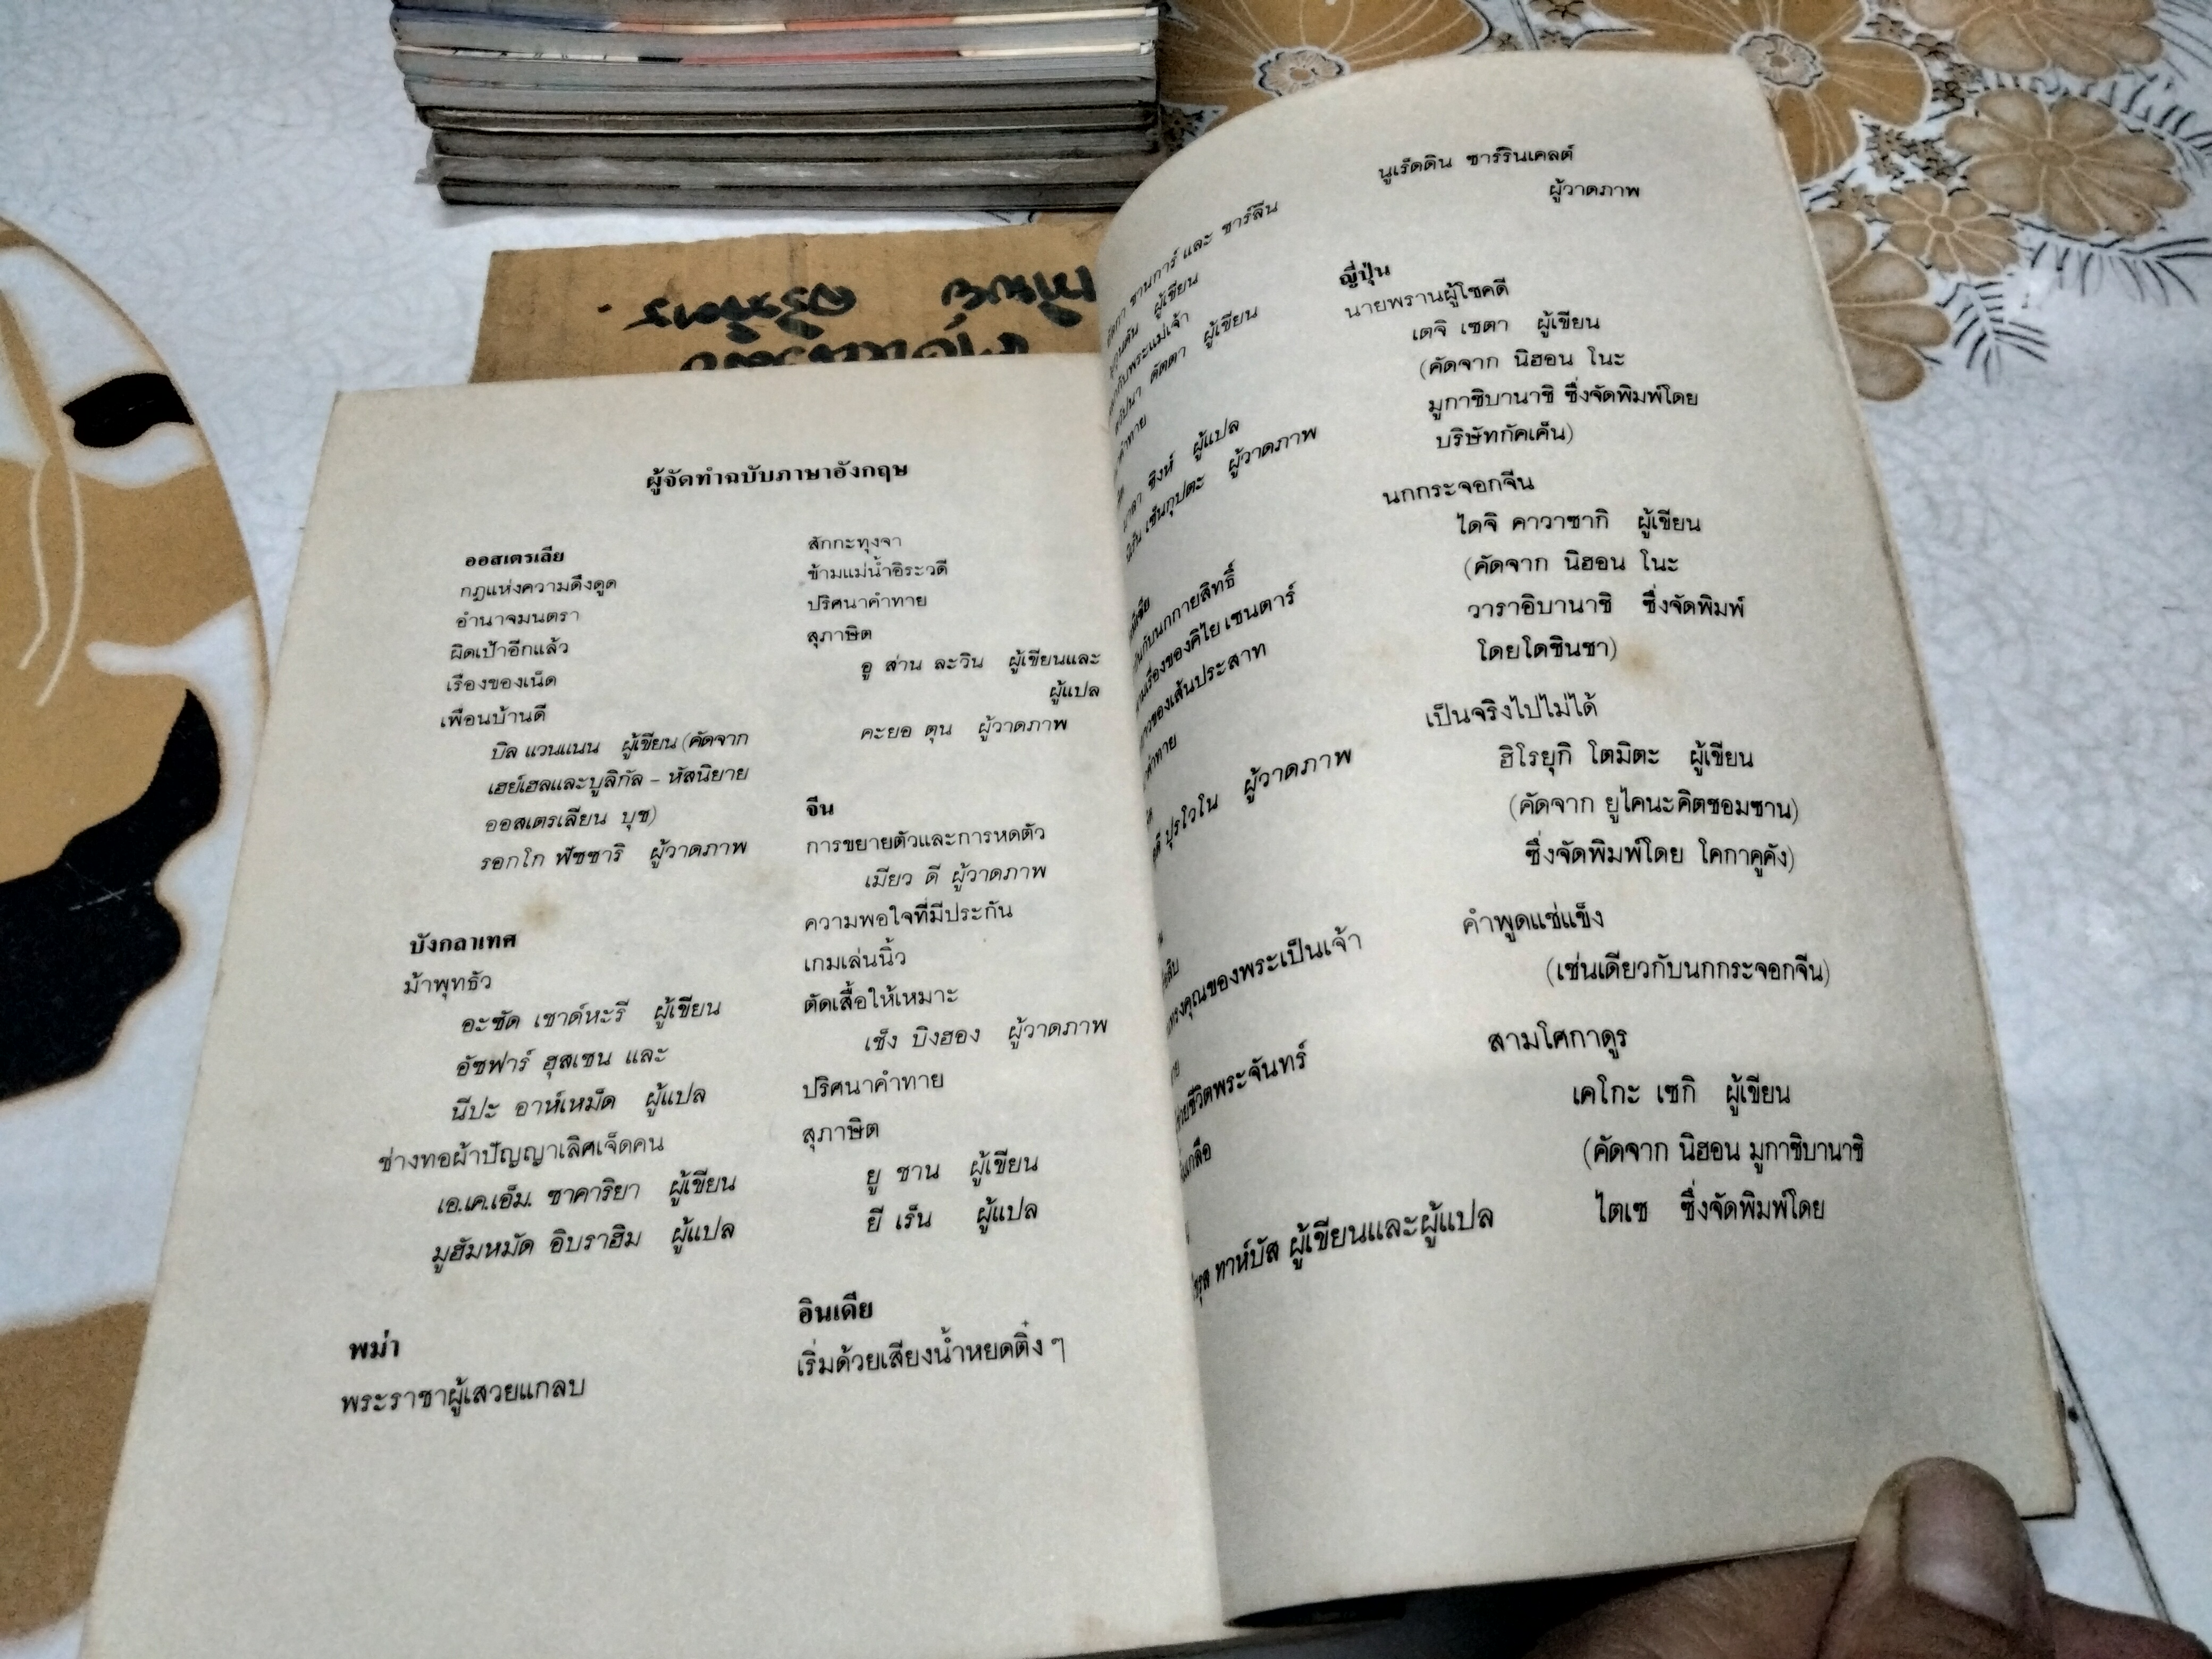 ผู้จัดทำฉบับภาษาอังกฤษ
ออสเตรเลีย
กฎแห่งความดึงดูด
อำนาจมนตรา
ผิดเป้าอีกแล้ว
เรื่องของเน็ด
เพื่อนบ้านดี
บิล แวนแนน ผู้เขียน (คัดจาก
เฮย์เฮลและบูลิกัล – หัสนิยาย
ออสเตรเลียน บุช)
รอกโก ฟัซซาริ ผู้วาดภาพ
บังกลาเทศ
ม้าพุทธัว
อะซัด เชาด์หะรี ผู้เขียน
อัซฟาร์ ฮุสเซน และ
นีปะ อาห์เหม็ด ผู้แปล
ช่างทอผ้าปัญญาเลิศเจ็ดคน
เอ.เค.เอ็ม. ซาคาริยา ผู้เขียน
มูฮัมหมัด อิบราฮิม ผู้แปล
พม่า
พระราชาผู้เสวยแกลบ
สักกะทุงจา
ข้ามแม่น้ำอิระวดี
ปริศนาคำทาย
สุภาษิต
อู ส่าน ละวิน ผู้เขียนและ
ผู้แปล
คะยอ ตุน ผู้วาดภาพ
จีน
การขยายตัวและการหดตัว
เมียว ดี ผู้วาดภาพ
ความพอใจที่มีประกัน
เกมเล่นนิ้ว
ตัดเสื้อให้เหมาะ
เช็ง บิงฮอง ผู้วาดภาพ
ปริศนาคำทาย
สุภาษิต
ยู ชาน ผู้เขียน
ยี เร็น ผู้แปล
อินเดีย
เริ่มด้วยเสียงน้ำหยดติ๋ง ๆ
ชานการ์ และ ชาร์ลีน
ผู้เขียน
ดัตตา ผู้เขียน
ซิงห์ ผู้แปล
เซ็นกุปตะ ผู้วาดภาพ
ปุรโวโน ผู้วาดภาพ
คุณของพระเป็นเจ้า
ชีวิตพระจันทร์
ทาห์บัส ผู้เขียนและผู้แปล
นูเร็ดดิน ซาร์รินเคลต์
ผู้วาดภาพ
ญี่ปุ่น
นายพรานผู้โชคดี
เตจิ เซตา ผู้เขียน
(คัดจาก นิฮอน โนะ
มูกาชิบานาชิ ซึ่งจัดพิมพ์โดย
บริษัทกัคเค็น)
นกกระจอกจีน
ไดจิ คาวาซากิ ผู้เขียน
(คัดจาก นิฮอน โนะ
วาราอิบานาชิ ซึ่งจัดพิมพ์
โดยโดชินชา)
เป็นจริงไปไม่ได้
ฮิโรยุกิ โตมิตะ ผู้เขียน
(คัดจาก ยูไคนะคิตชอมซาน)
ซึ่งจัดพิมพ์โดย โคกาคูคัง)
คำพูดแช่แข็ง
(เช่นเดียวกับนกกระจอกจีน)
สามโศกาดูร
เคโกะ เซกิ ผู้เขียน
(คัดจาก นิฮอน มูกาชิบานาชิ
ไตเซ ซึ่งจัดพิมพ์โดย